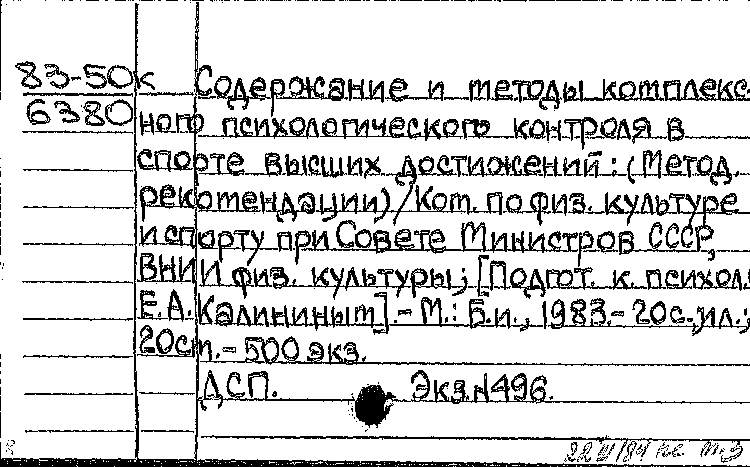 83-50к Содержание и методы комплекс-
6380 ного психологического контроля в
спорте высших достижений: (Метод.
рекомендации)/Ком. по физ. культуре
и спорту при Совете Министров СССР,
ВНИИ физ. культуры; [Подгот. к. психол.
Е.А. Калининым].- М.: Б.и., 1983.- 20с.,ил.;
20см.- 500 экз.
ДСП. Экз.N496.